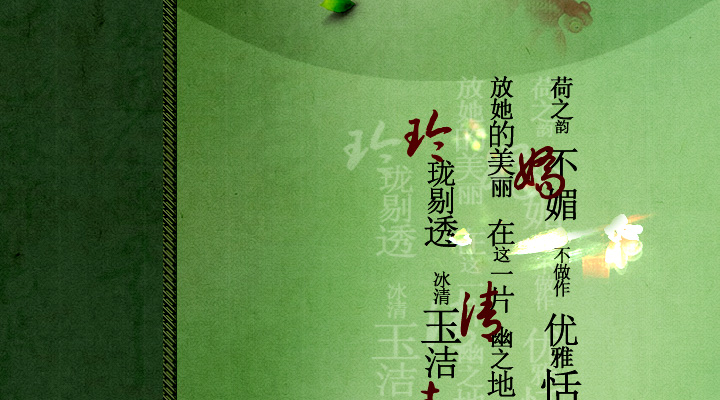 荷之韵 不嬌媚 不做作 优雅恬
放她的美丽 在这一片清幽之地
玲珑剔透 冰清玉洁